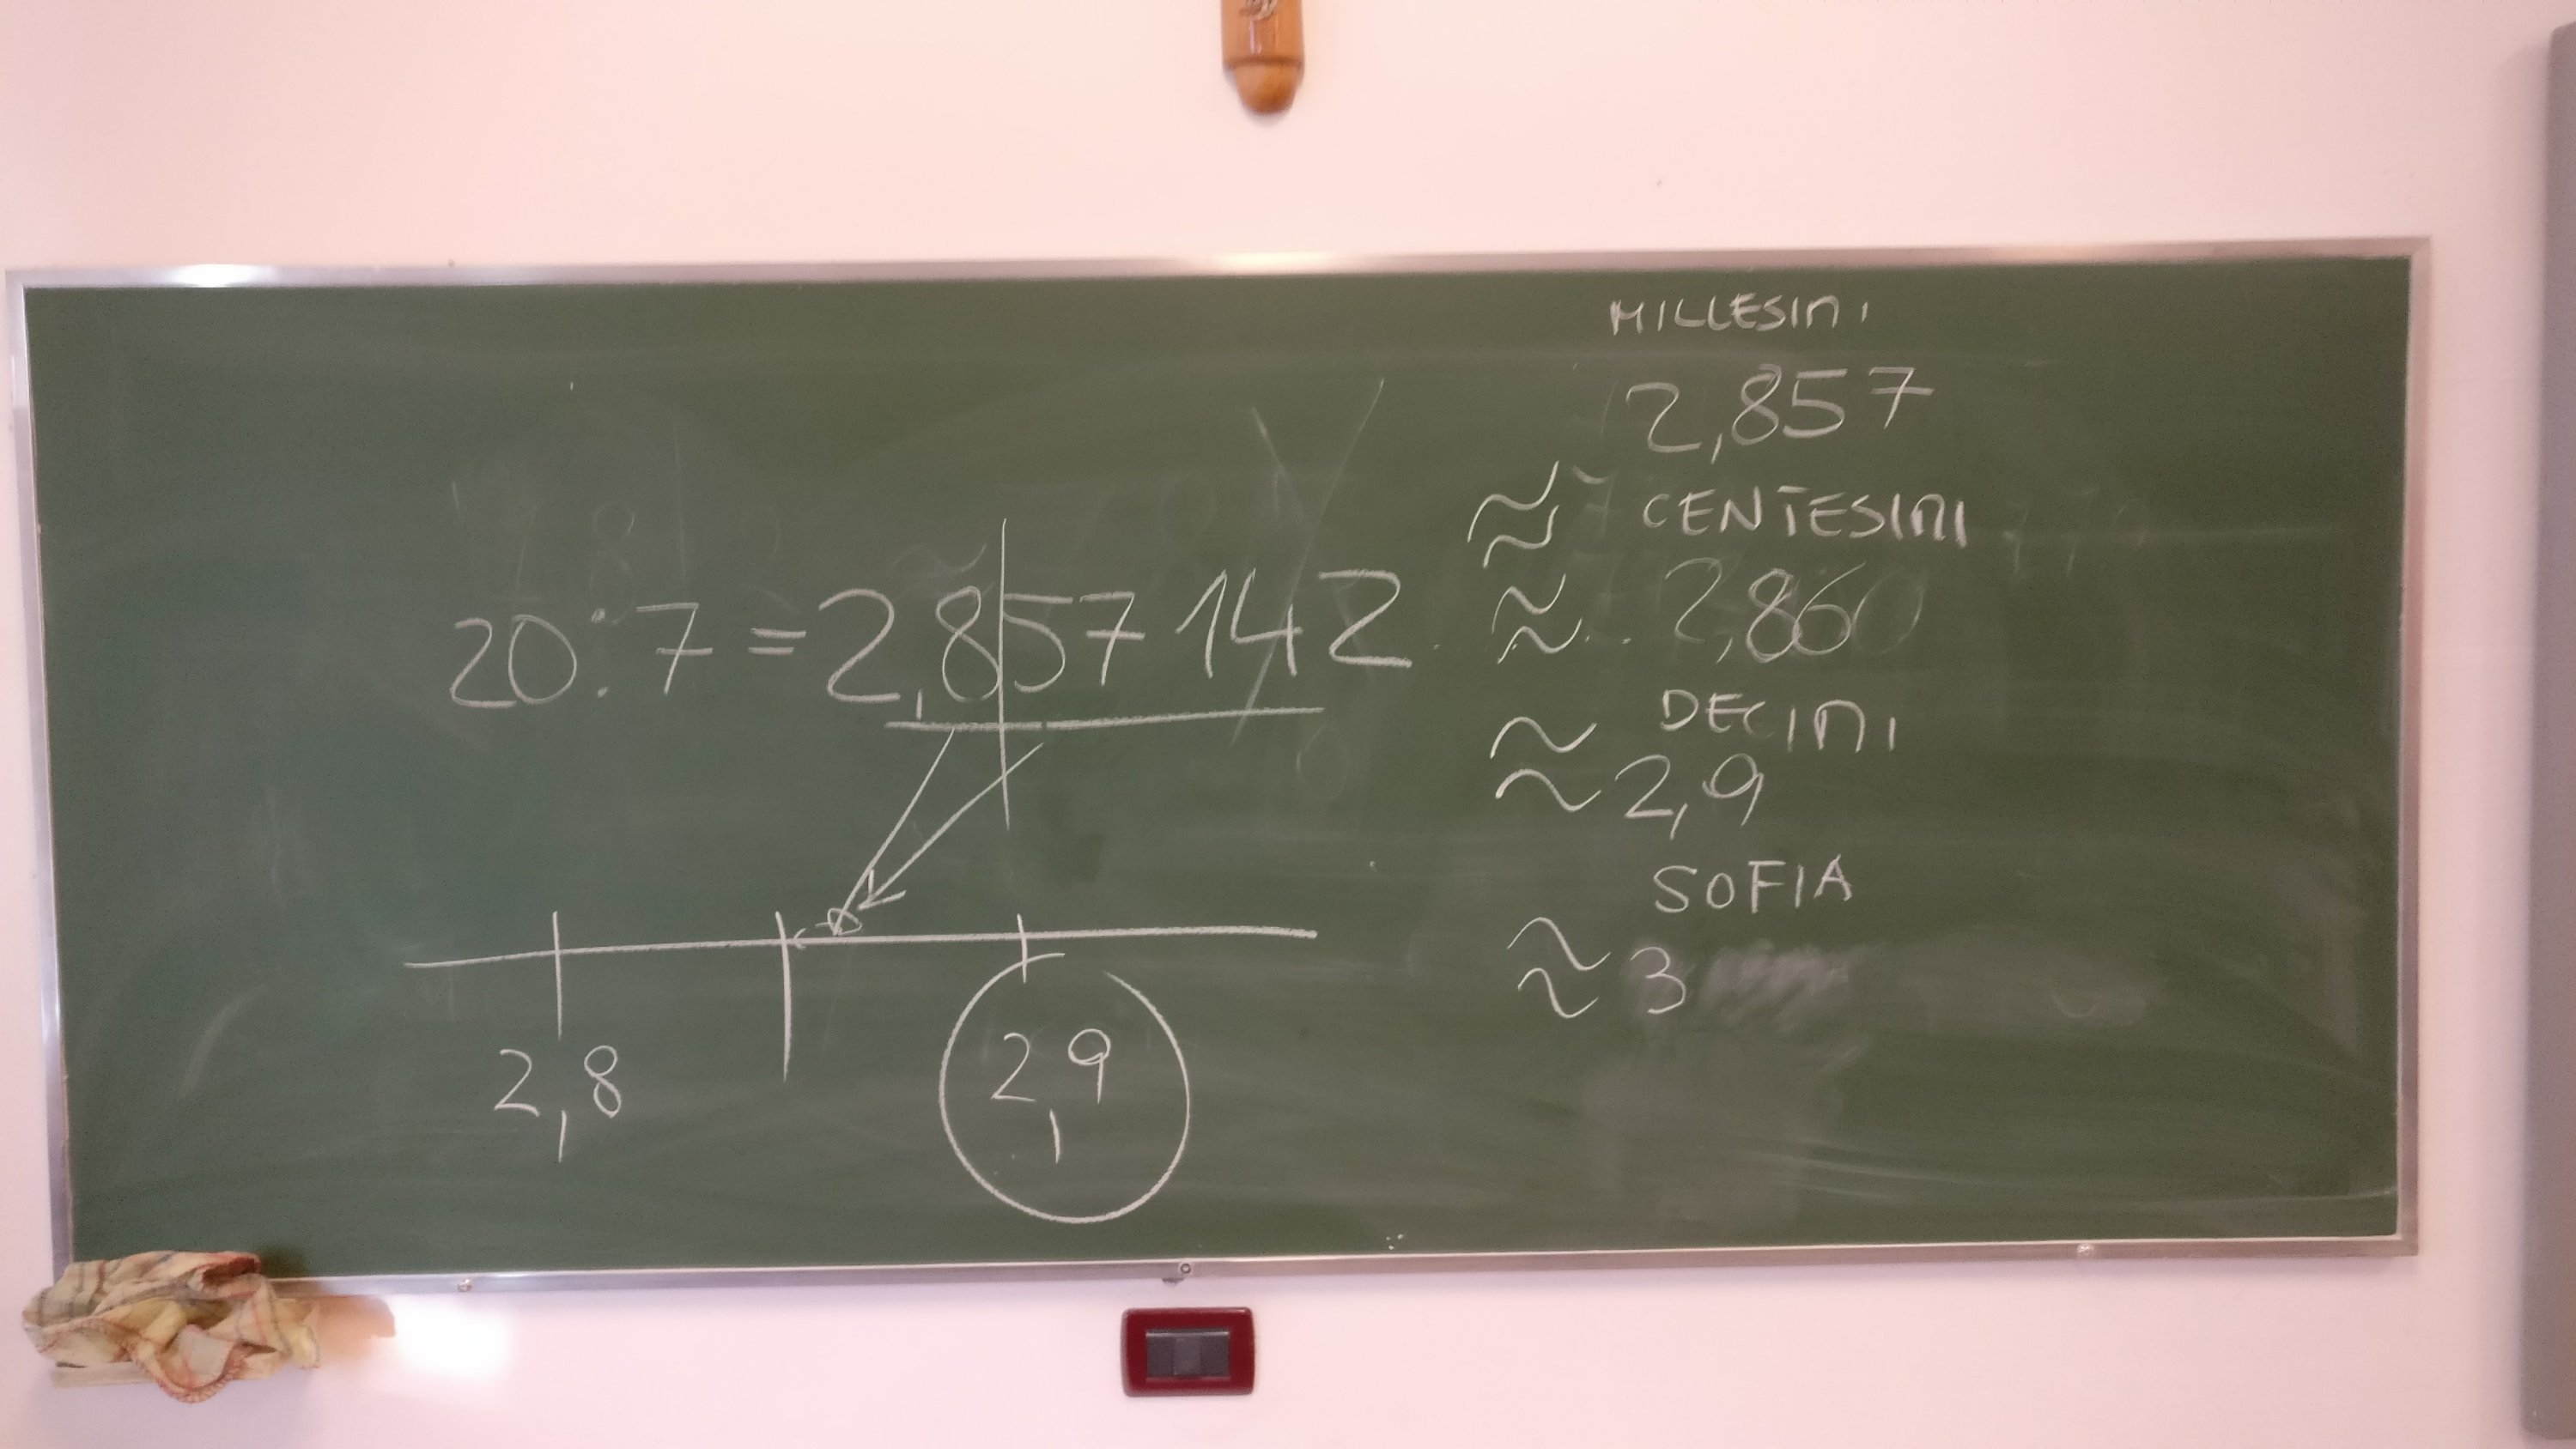 20:7 = 2,857142
2,8
2,9
MILLESIMI
2,857
≈ CENTESIMI
≈ 2,860
≈ DECIMI
2,9
SOFIA
≈ 3